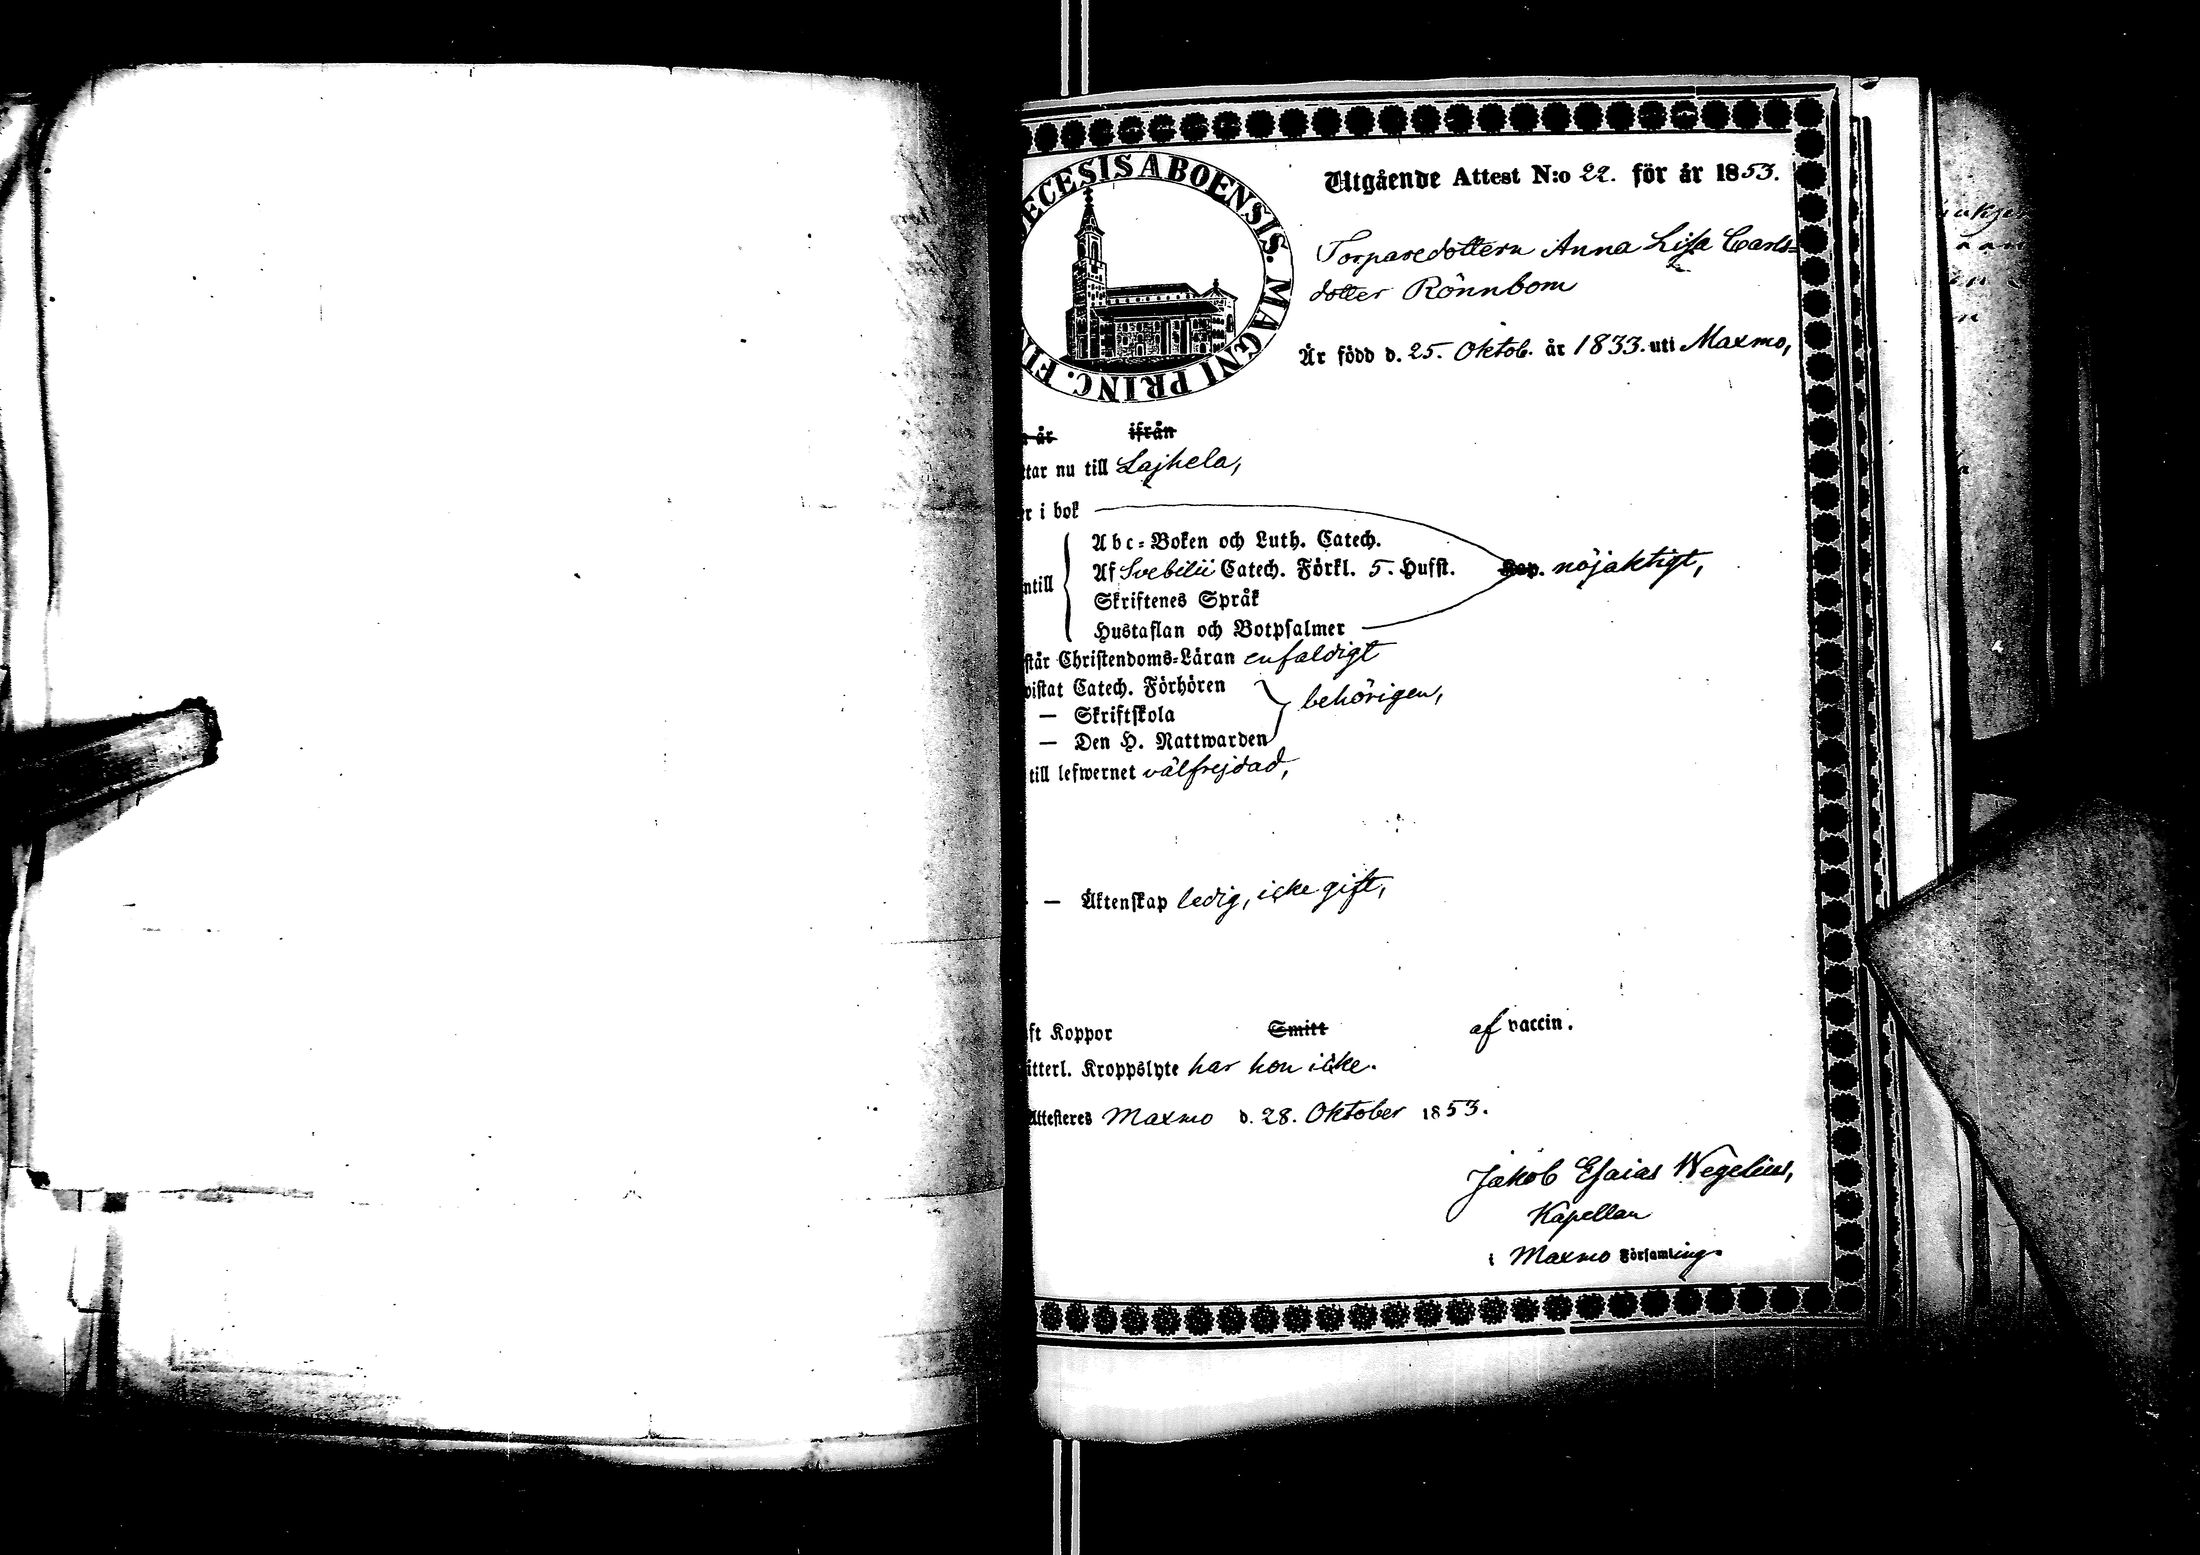 ECESIS ABOENSIS. MAGNI PRINC. FI
Utgående Attest N:o 22. för år 1853.
Torparedottern Anna Lisa Carls-
dotter Rönnbom
Är född d. 25. Oktob. år 1833. uti Maxmo,
år ifrån
ttar nu till Lajhela,
r i bok
Abc-Boken och Luth. Catech.
Af Svebilii Catech. Förkl. 5. Hufst. Kap. nöjaktigt,
ntill
Skriftenes Språk
Hustaflan och Botpsalmer
står Christendoms-Läran enfaldigt
vistat Catech. Förhören
behörigen,
— Skriftskola
— Den H. Nattwarden
till lefwernet välfrejdad,
— Äktenskap ledig, icke gift,
ft Koppor Smitt af vaccin.
itterl. Kroppslyte har hon icke.
Attesteres Maxmo d. 28. Oktober 1853.
Jakob Esaias Wegelius,
Kapellan
i Maxmo Församling.